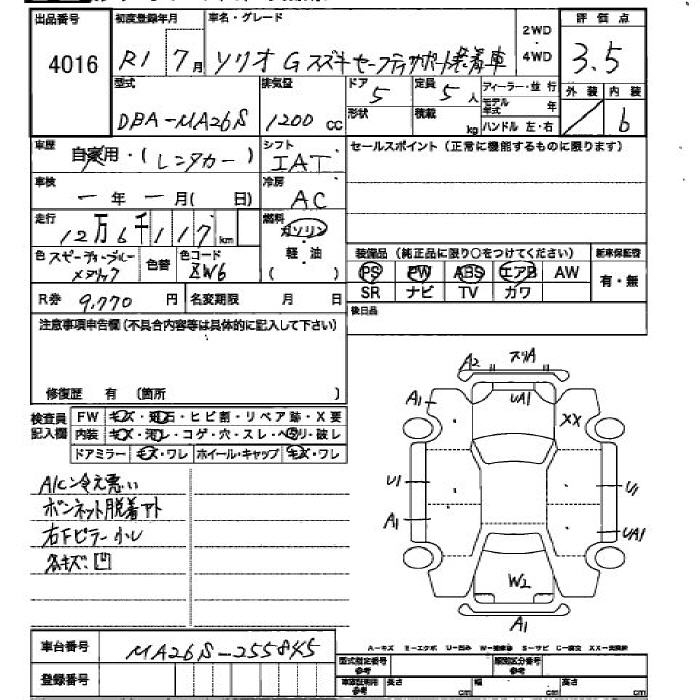 出品番号 初度登録年月 車名・グレード 2WD 評価点
4016 R1 7月 ソリオ G スズキセーフティサポート装着車 4WD 3.5
型式 排気量 ドア 5 定員 5人 フィーラー・並行 外装 内装
DBA-MA26S 1200 cc 形状 積載 kg モデル年式 年 ハンドル 左・右 / b
車歴 自家用・(レンタカー) シフト IAT セールスポイント(正常に機能するものに限ります)
車検 一年一月( 日) 冷房 AC
走行 12万6千117km 燃料 ガソリン
色 スピーディーブルーメタリック 色替 色コード ZW6 軽・油 ( )
装備品(純正品に限り○をつけてください) 新車保証書
PS PW ABS エアB AW 有・無
SR ナビ TV カワ
R券 9,770 円 名変期限 月 日 後日品
注意事項申告欄(不具合内容等は具体的に記入して下さい)
修復歴 有 (箇所 )
検査員記入欄 FW キズ・飛石・ヒビ割・リペア跡・X要
内装 キズ・汚レ・コゲ・穴・スレ・ヘタリ・破レ
ドアミラー キズ・ワレ ホイール・キャップ キズ・ワレ
A/C冷え悪い
ボンネット脱着アト
右Fピラー小U
各キズ・凹
A2 スリA
A1 UA1 XX
U1 U1
A1 UA1
W2
A1
A-キズ E-エクボ U-凹み W-補修跡 S-サビ C-腐食 XX-交換済
車台番号 MA26S-255845
登録番号
型式指定番号 参考 類別区分番号 参考
車検証記載 参考 長さ cm 幅 cm 高さ cm